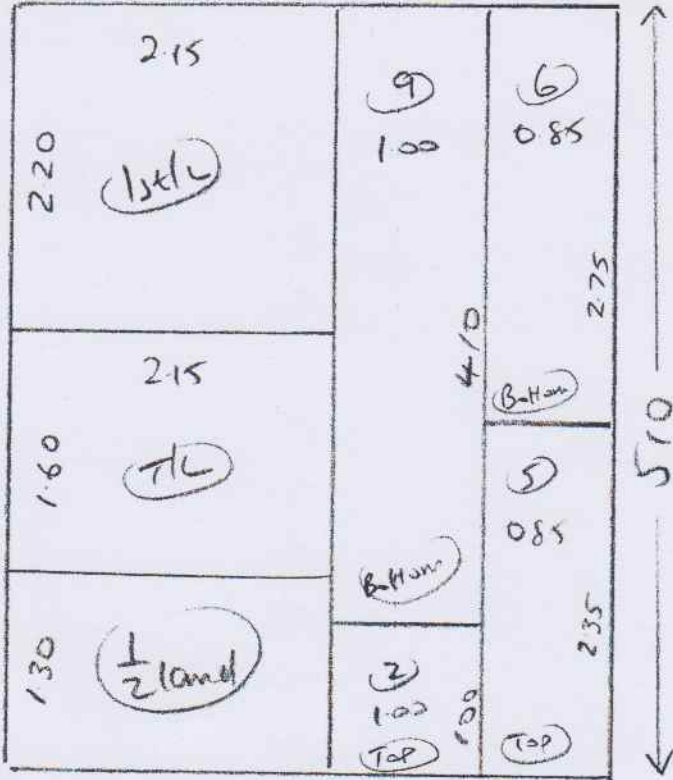 2.15
2.20
1st/L
2.15
1.60
T/L
1.30
1/2 land
9
1.00
4.10
Bottom
2
1.00
1.00
Top
6
0.85
2.75
Bottom
5
0.85
2.35
Top
5.10